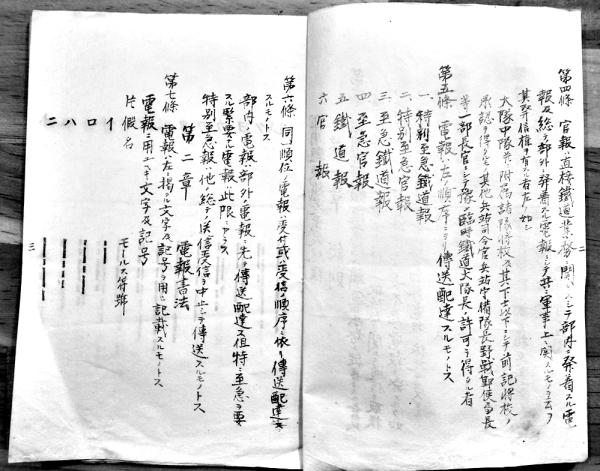 二
第四條 官報ハ直接鐵道業務ニ關シテ部內ニ発着スル電
報及総テ部外ニ発着スル電報ニシテ共ニ軍事上ニ関スルモノヲ云フ
其発信權ヲ有スル者左ノ如シ
大隊中隊並ニ附属諸隊将校及其下士以下ニシテ前記将校ノ
承認ヲ得タル者其他兵站司令官兵站守備隊長野戰郵便局長
等一部長官ニシテ豫メ臨時鐵道大隊長ノ許可ヲ得タル者
第五條 電報ハ左ノ順序ニヨリ傳送配達スルモノトス
一、特別至急鐵道報
二、特別至急官報
三、至急鐵道報
四 至急官報
五 鐵道報
六 官報
第六條 同順位ノ電報ハ受付或ハ受信ノ順序ニ依リ傳送配達
スルモノトス
部內ノ電報ハ部外ノ電報ニ先チ傳送配達ス但特ニ至急ヲ要
スル緊要ノ電報ハ此限ニアラス
特別至急報ハ他ノ総テノ送信受信ヲ中止シテ傳送スルモノトス
第二章 電報書法
第七條 電報ハ左ニ掲クル文字及記号ヲ用ヒ記載スルモノトス
電報ニ用ユヘキ文字及記号
片假名 モールス符號
イ
ロ
ハ
ニ
三